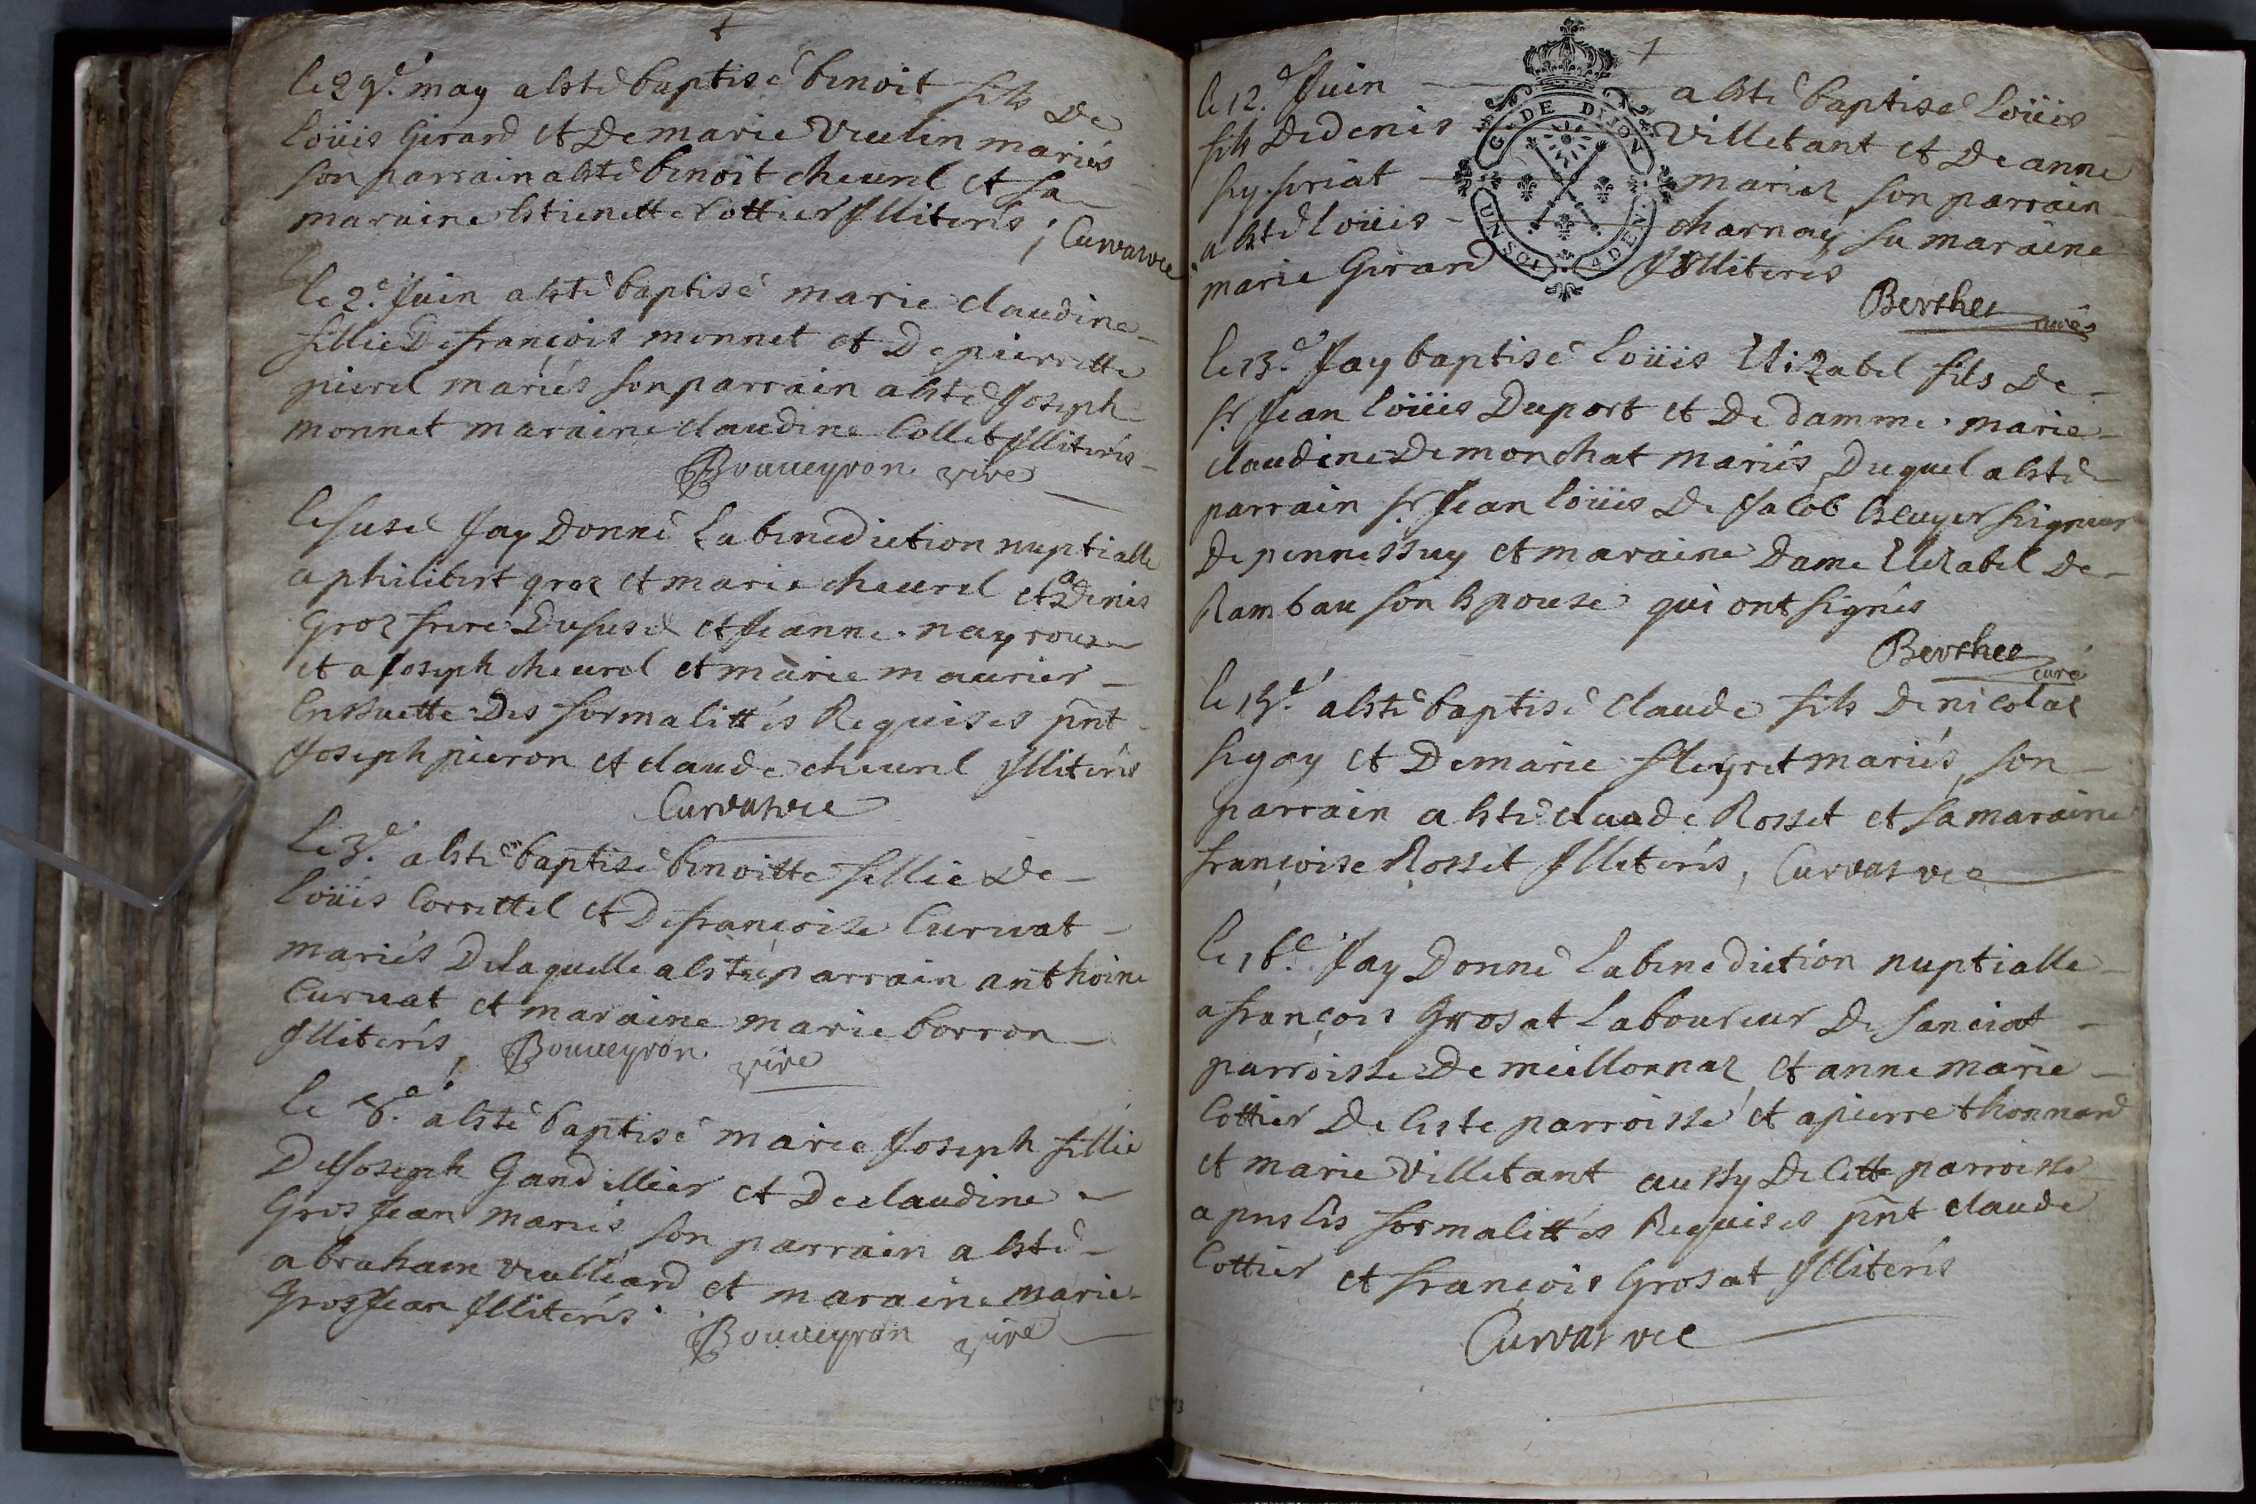 le 29.e may a esté baptisé benoit fils de
loüis Girard et de marie Vieulin mariés
son parrain a esté benoit cheurel et sa
maraine estienette Cottier Illiterés ; Curvat vic
le 2.e Juin a esté baptisé marie claudine
fillie de françois monnet et de pierrette
pierel mariés son parrain a esté Joseph
monnet maraine claudine Collet Illiterés
Bouueyron vire
le susd Jay donné la benediction nuptialle
a philibert groz et marie cheurel et a denis
Groz frere dususd et Jeanne nayrouz
et a Joseph cheurel et marie maurier
Enssuette des formalittés Requises pnt
Joseph pieron et claude cheurel Illiterés
Curvat vic
le 3.e a esté baptisé benoitte fillie de
loüis Correttel et de françoise Curuat
mariés de laquelle a esté parrain anthoine
Curuat et maraine marie borron
Illiterés, Bouueyron vire
le 8.e a esté baptisé marie Joseph fillie
de Joseph Gandillier et de claudine
Gros Jean mariés son parrain a esté
abraham veulliard et maraine marie
Gros Jean Illiterés
Bouueyron vire
le 12.e Juin a esté baptisé loüis
fils de denis Villetant et de anne
sysoriat mariez son parrain
a esté loüis charnay sa maraine
marie Girard Illiterés
G. DE DIJON
UNSOL 4 DEN.
Berthet curé
le 13.e Jay baptisé loüis Elizabel fils de
sr Jean loüis Duport et de damme marie
claudine Demonchat mariés Duquel a esté
parrain sr Jean loüis de Jacob Escuyer seigneur
de pennessuy et maraine dame Elizabel de
Rambau son Espouse qui ont signés
Berthet curé
le 15.e a esté baptisé claude fils de nicolas
segay et de marie fleyret mariés son
parrain a esté claude Rosset et sa maraine
françoise Rosset Illiterés, Curvat vic
le 16.e Jay donné la benediction nuptialle
a françois Grosat laboureur de sanciat
parroisse de meillonnaz et anne marie
Cottier de ceste parroisse et a pierre thonnard
et marie Villetant aussy de cette parroisse
apres les formalittés Requises pnt claude
Cottier et françois Grosat Illiterés
Curvat vic